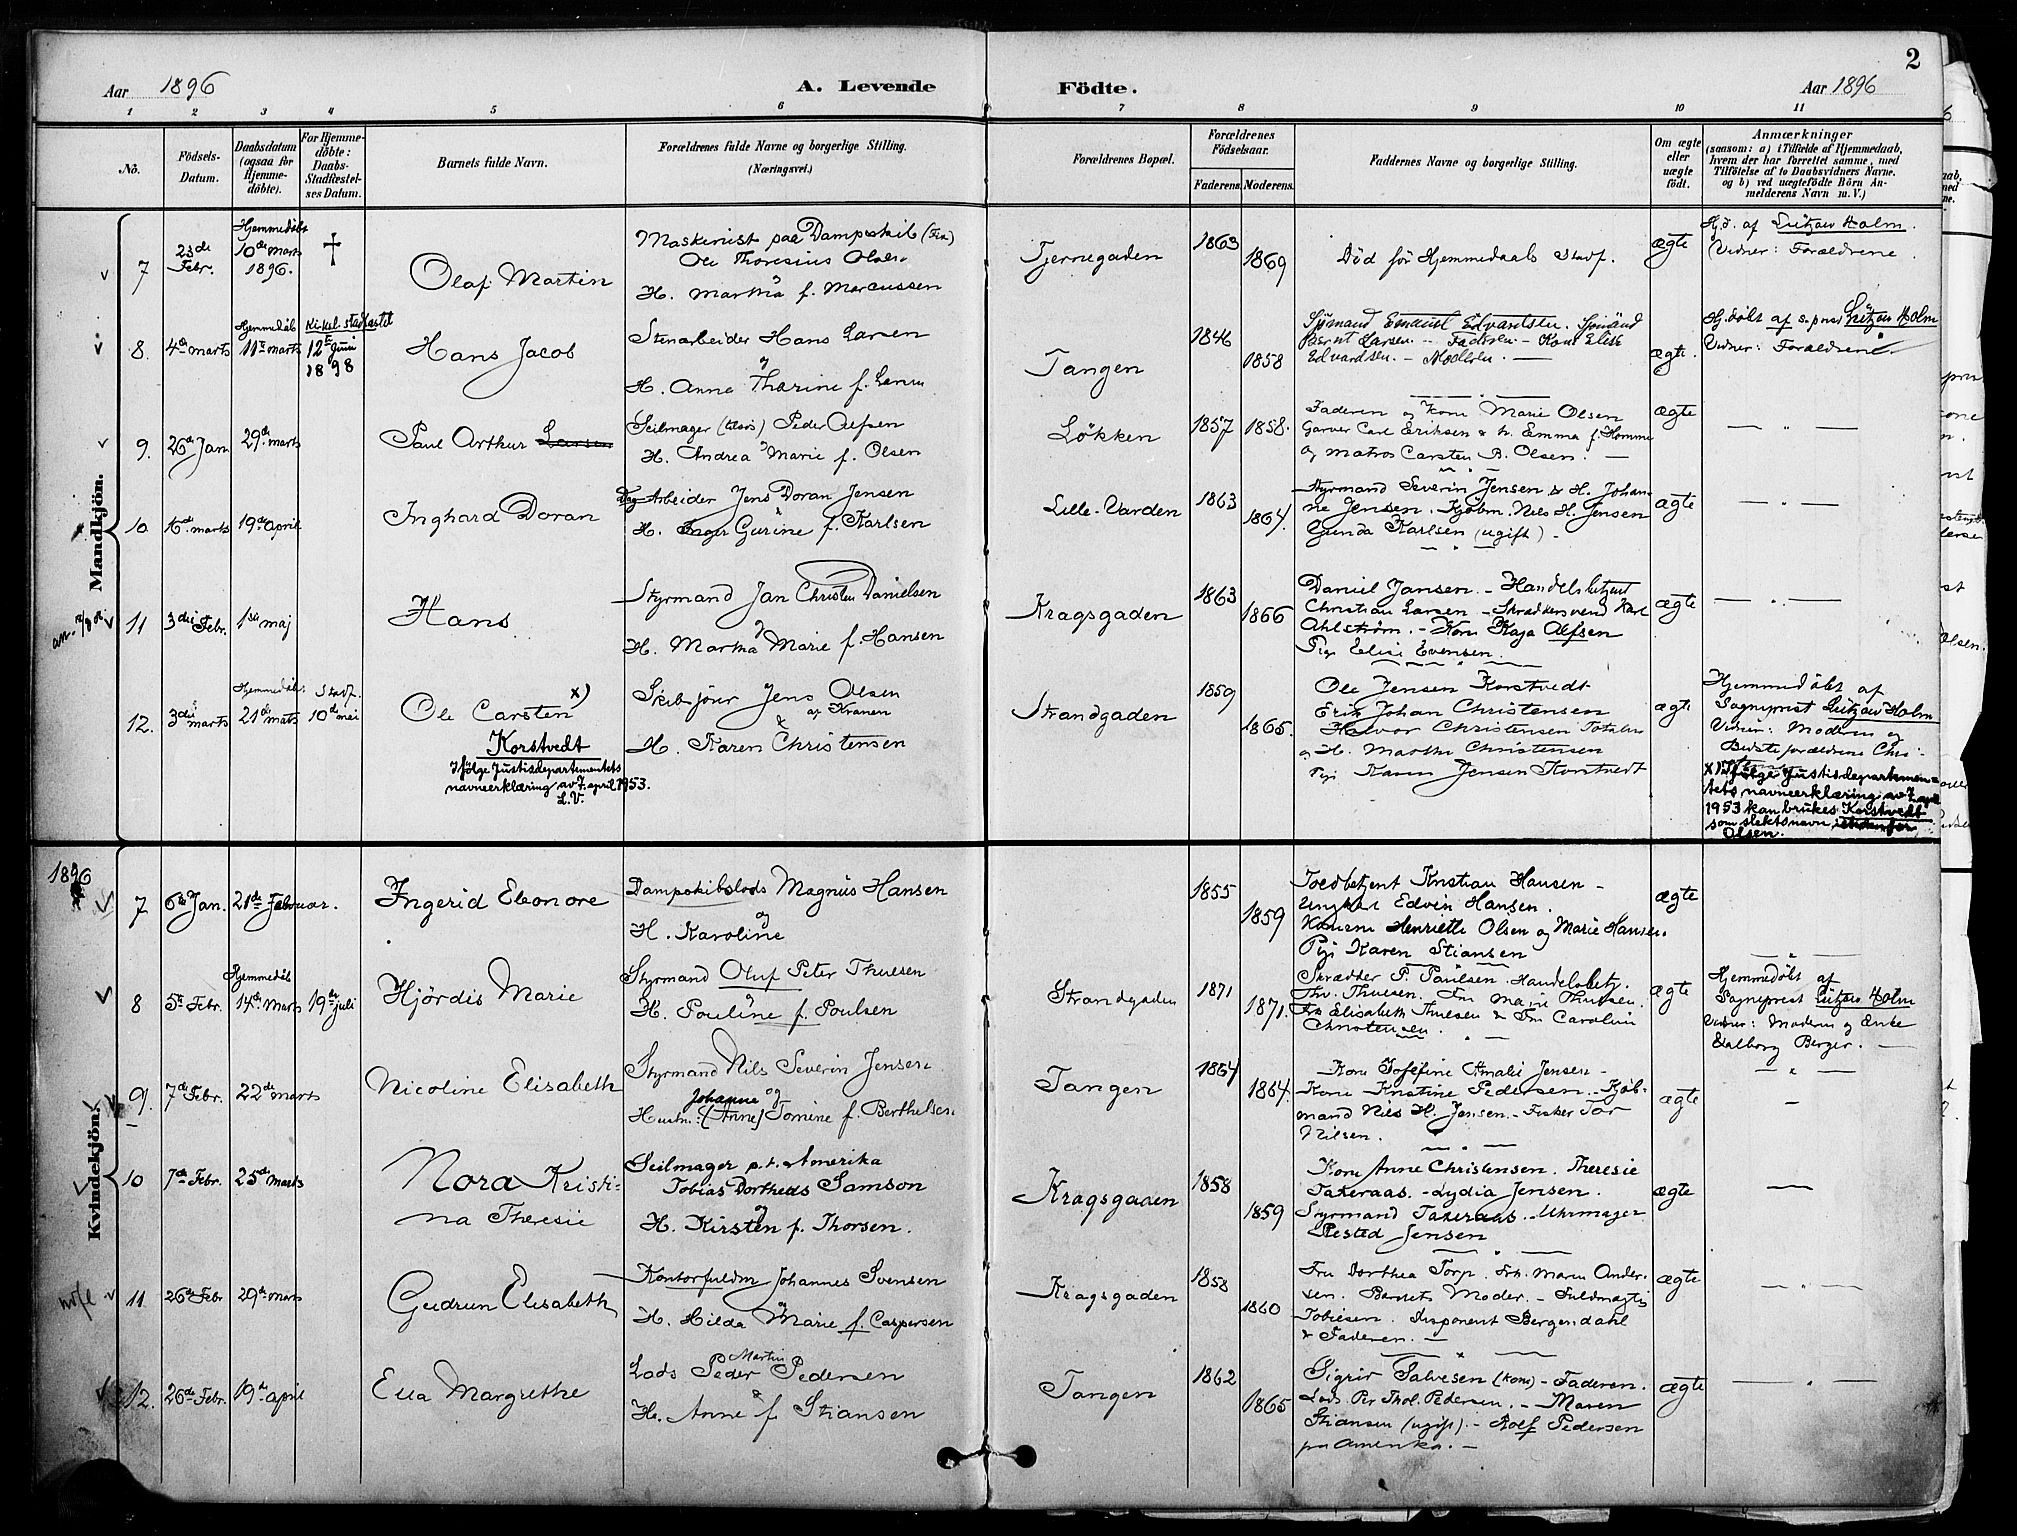 2
Aar 1896
A. Levende Födte.
Aar 1896
1 2 3 4 5 6 7 8 9 10 11
No.
Födsels-
Datum.
Daabsdatum
(ogsaa for
Hjemme-
döbte).
For Hjemme-
döbte:
Daabs-
Stadfæstel-
ses Datum.
Barnets fulde Navn.
Forældrenes fulde Navne og borgerlige Stilling.
(Næringsvei.)
Forældrenes Bopæl.
Forældrenes
Födselsaar.
Faderens. Moderens.
Faddernes Navne og borgerlige Stilling.
Om ægte
eller
uægte
født.
Anmærkninger
(saasom: a) i Tilfælde af Hjemmedaab,
hvem der har forrettet samme, med
Tilföielse af to Daabsvidners Navne.
og b) ved uægtefödte Börn An-
melderens Navn m. V.)
Mandkjön.
7
23de
Febr.
Hjemmedøbt
10de Marts
1896.
†
Olaf Martin
Maskinist paa Dampskib
Ole Thoresius Olsen
og
H. Martha f. Marcussen
Tjernegaden
1863
1869
Død før Hjemmedaabs Stadf.
ægte
Hj.d. af Lützow Holm.
Vidner: Forældrene
8.
4de marts
Hjemmedøb
11te marts
Kirkel. stadfæstet
12te Juni
1898
Hans Jacob
Stenarbeider Hans Larsen
og
H. Anna Thorine f. Larsen
Tangen
1846
1858
Edvardsen. - Moderen. —
ægte.
Hj.døbt af s.pr. Lützow Holm
Vidner: Forældrene.
9.
26de Jan
29de marts
Paul Arthur Larsen
Seilmager Peder Olsen
og
H. Andrea Marie f. Olsen
Løkken
1857 1858.
Faderen og Kone Marie Olsen
Garver Carl Eriksen & h. Emma f. Homme
og matros Carsten B. Olsen. —
ægte
— " —
10
19de april
Inghard Doran
Dag-Arbeider Jens Doran Jensen
&
H. Inger Gurine f. Karlsen
Lille-Varden
1863
1864.
Styrmand Severin Jensen & H. Johan-
ne Jensen. Kjøbm. Nils H. Jensen
Gunda Karlsen (ugift) -
ægte
— " —
11
3die Febr.
1ste maj
Hans
Styrmand Jan Christen Danielsen
og
H. Martha Marie f. Hansen
Kragsgaden
1863
1866
Daniel Jansen. - Handelsbetjent
Christian Larsen - Skræddersvend Karl
Ahlström. - Kone Kaja Alfsen
Pige Elise Evensen.
ægte
— " —
12.
3die marts
Hjemmedøb:
21de mats
Stadf.
10de mai
Ole Carsten x)
Korstvedt
Ifølge Justisdepartementets
navneerklæring av 7. april 1953.
L.V.
Jens Olsen
&
H. Karen Christensen
Strandgaden
1859
1865.
Ole Jensen Korstvedt
Erik Johan Christensen
Halvor Christensen
og H. Marthe Christensen
Pige Karen Jensen Korstvedt
ægte
Hjemmedøbt af
Sogneprest Lützow Holm
Vidner: Moderen og
Bedsteforældrene
x) Ifølge Justisdepartemen-
tets navneerklæring av 7. april
1953 kan brukes Korstvedt
som slektsnavn istedenfor
Olsen.
1896
Kvindekjön.
7
6te Jan.
21de Februar.
Ingerid Eleonore
Dampskibslods Magnus Hansen
og
H. Karoline
1855
1859
Toldbetjent Kristian Hansen -
Ungkarl Edvin Hansen.
Konerne Henriette Olsen og Marie Hansen.
Pige Karen Stiansen
ægte
— " —
8
5te Febr.
Hjemmedøb
14de Marts
19de juli
Hjördis Marie
Styrmand Oluf Peter Thuesen
og
H. Pouline f. Poulsen
Strandgaden
1871
1871.
Skrædder P. Paulsen. Handelsbetj.
Th. Thuesen. Fru Marie Thuesen.
Frk Elisabeth Thuesen & Fru Caroline
Christensen.
ægte
Hjemmedøbt af
Sogneprest Lützow Holm
Vidner: Moderen og Enke
Valborg Berger. —
9.
7de Febr.
22de marts
Nicoline Elisabeth
Styrmand Nils Severin Jensen
Johanne og
Hustru: (Anne) Tomine f. Berthelsen
Tangen
1864
1864.
Kone Josefine Amalie Jensen -
Kone Kristine Pedersen - Kjøb-
mand Nils H. Jensen. - Fisker Tor
Nilsen.
ægte
— " —
10
7de Febr.
25de Marts
Nora Kristi-
na Theresie
Seilmager p.t. Amerika
Tobias Dortheds Samson
og
H. Kirsten f. Thorsen.
Kragsgaden
1858
1859
Kone Anne Christensen. Theresie
Takeraas. - Lydia Jensen.
Styrmand Takeraas - Uhrmager
Pested Jensen
ægte
—
11.
26de Febr
29de Marts
Gudrun Elisabeth
Kontorfuldm Johannes Svensen
og
H. Hilda Marie f. Caspersen
Kragsgaden
1858
1860
Fru Dorthea Torp. Frk. Maren Ander-
sen. Barnets Moder. - Fuldmægtig
Tobiesen. Disponent Bergendahl
& Faderen. —
ægte
— " —
12.
26de Febr.
19de april
Eva Margrethe
Martin
Lods Peder Pedersen
&
H. Anne f Stiansen
Tangen
1862
1865
Sigrid Salvesen (kone) - Faderen.
Lods Per Thol. Pedersen. - Maren
Stiansen (ugift). - Rolf Pedersen
paa Amerika. -
ægte
— " —